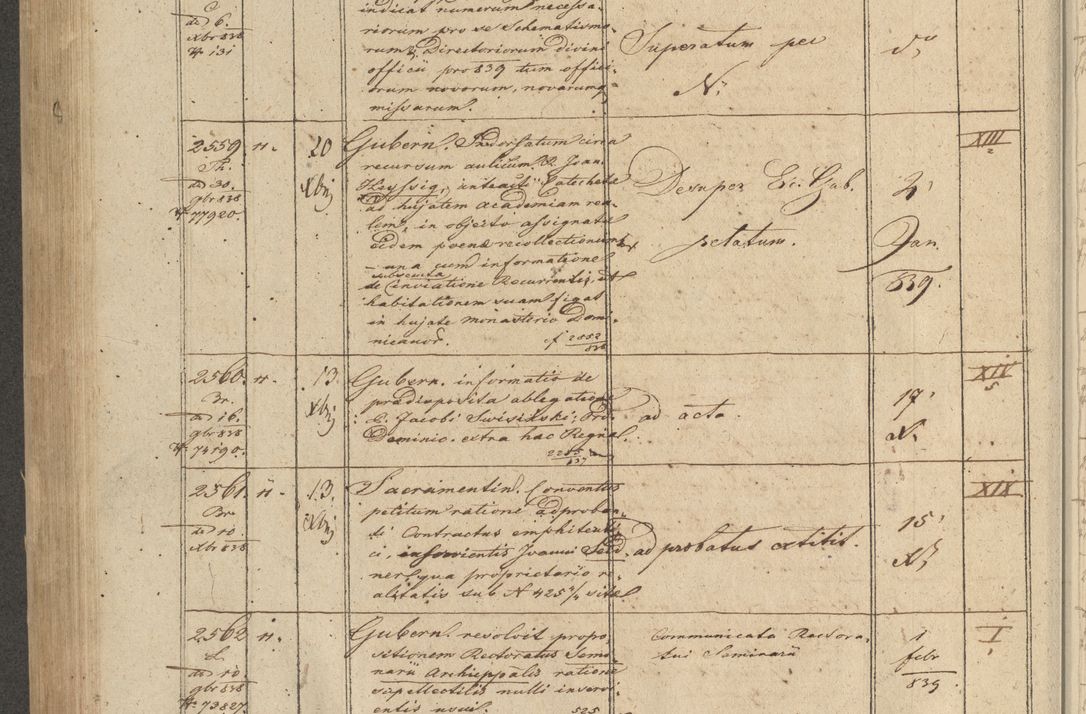 dd 6.
Xbr 838
№ 131
indicat numerum necessa-
riorum pro se Schematismo-
rum & Directoriorum divini
officii pro 839 tum offici-
orum novorum, novarumq
missarum.
Superatum per
N.
2559 n.
Th.
dd 30.
9br 838
№ 77920.
20
Xbr
Gubern. Indorsatum circa
recursum aulicum R. Joan.
Catecheta
ad hujatem academiam rea-
lem, in objecto assignata
eidem poenae recollectionum
una cum informatione
subsecuta
de Inviatione Recurrentis, ut
habitationem suam figat
in hujate monasterio Domi-
nicanor. cf 2552/838
Desuper Exc. Gub.
petatum.
2
Jan
839.
XIII
2
2560. n.
Br.
dd 16.
9br 838
№ 74190.
13.
Xbr
Gubern. informatio de
praedisposita ablegatione
Dominic. extra hac Regna.
ad acta.
17
XIV
5
2561. n.
Br
dd 10.
Xbr 838
13.
Xbr
Sacramentin. Conventus
petitum ratione adproban-
di Contractus emphiteuti-
ci, inservientis Joanni
ner, qua proprietario re-
alitatis sub N 425 4/4 sitae
adprobatus extitit.
15
XIX
2562 n.
L.
dd 10.
9br 838
№ 73827.
Gubern. resolvit propo-
sitionem Rectoratus Semi-
narii Archieppalis ratione
supellectilis nulli inservi-
entis novil. 525
Communicata Rectora-
tui Seminarii
1
febr
839
I